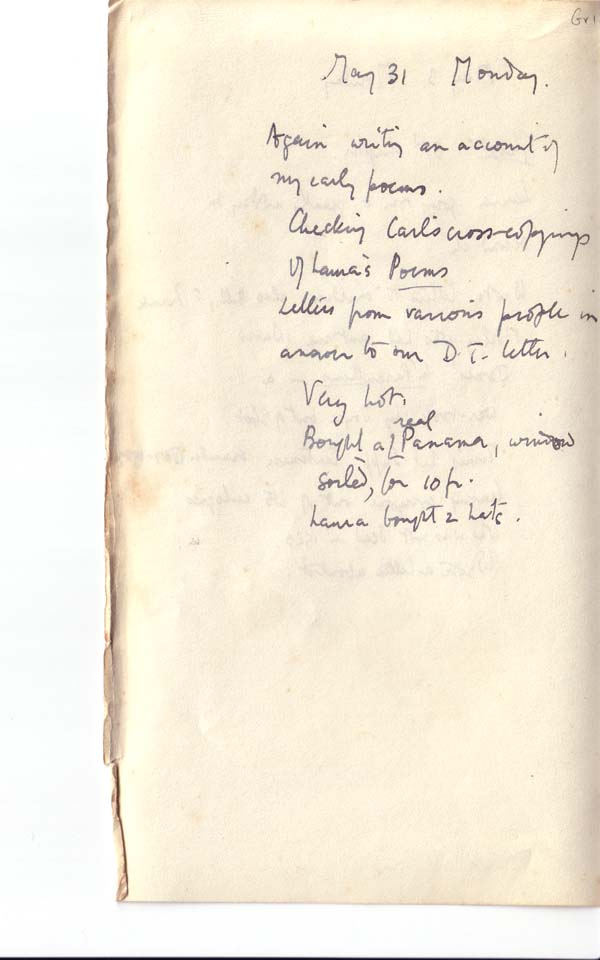 Gr1
May 31 Monday.
Again writing an account of
my early poems.
Checking Carl's cross-copyings
of Laura's Poems
Letters from various people in
answer to our D.T. letter.
Very hot.
Bought a real Panama, window
soiled, for 10 fr.
Laura bought 2 hats.